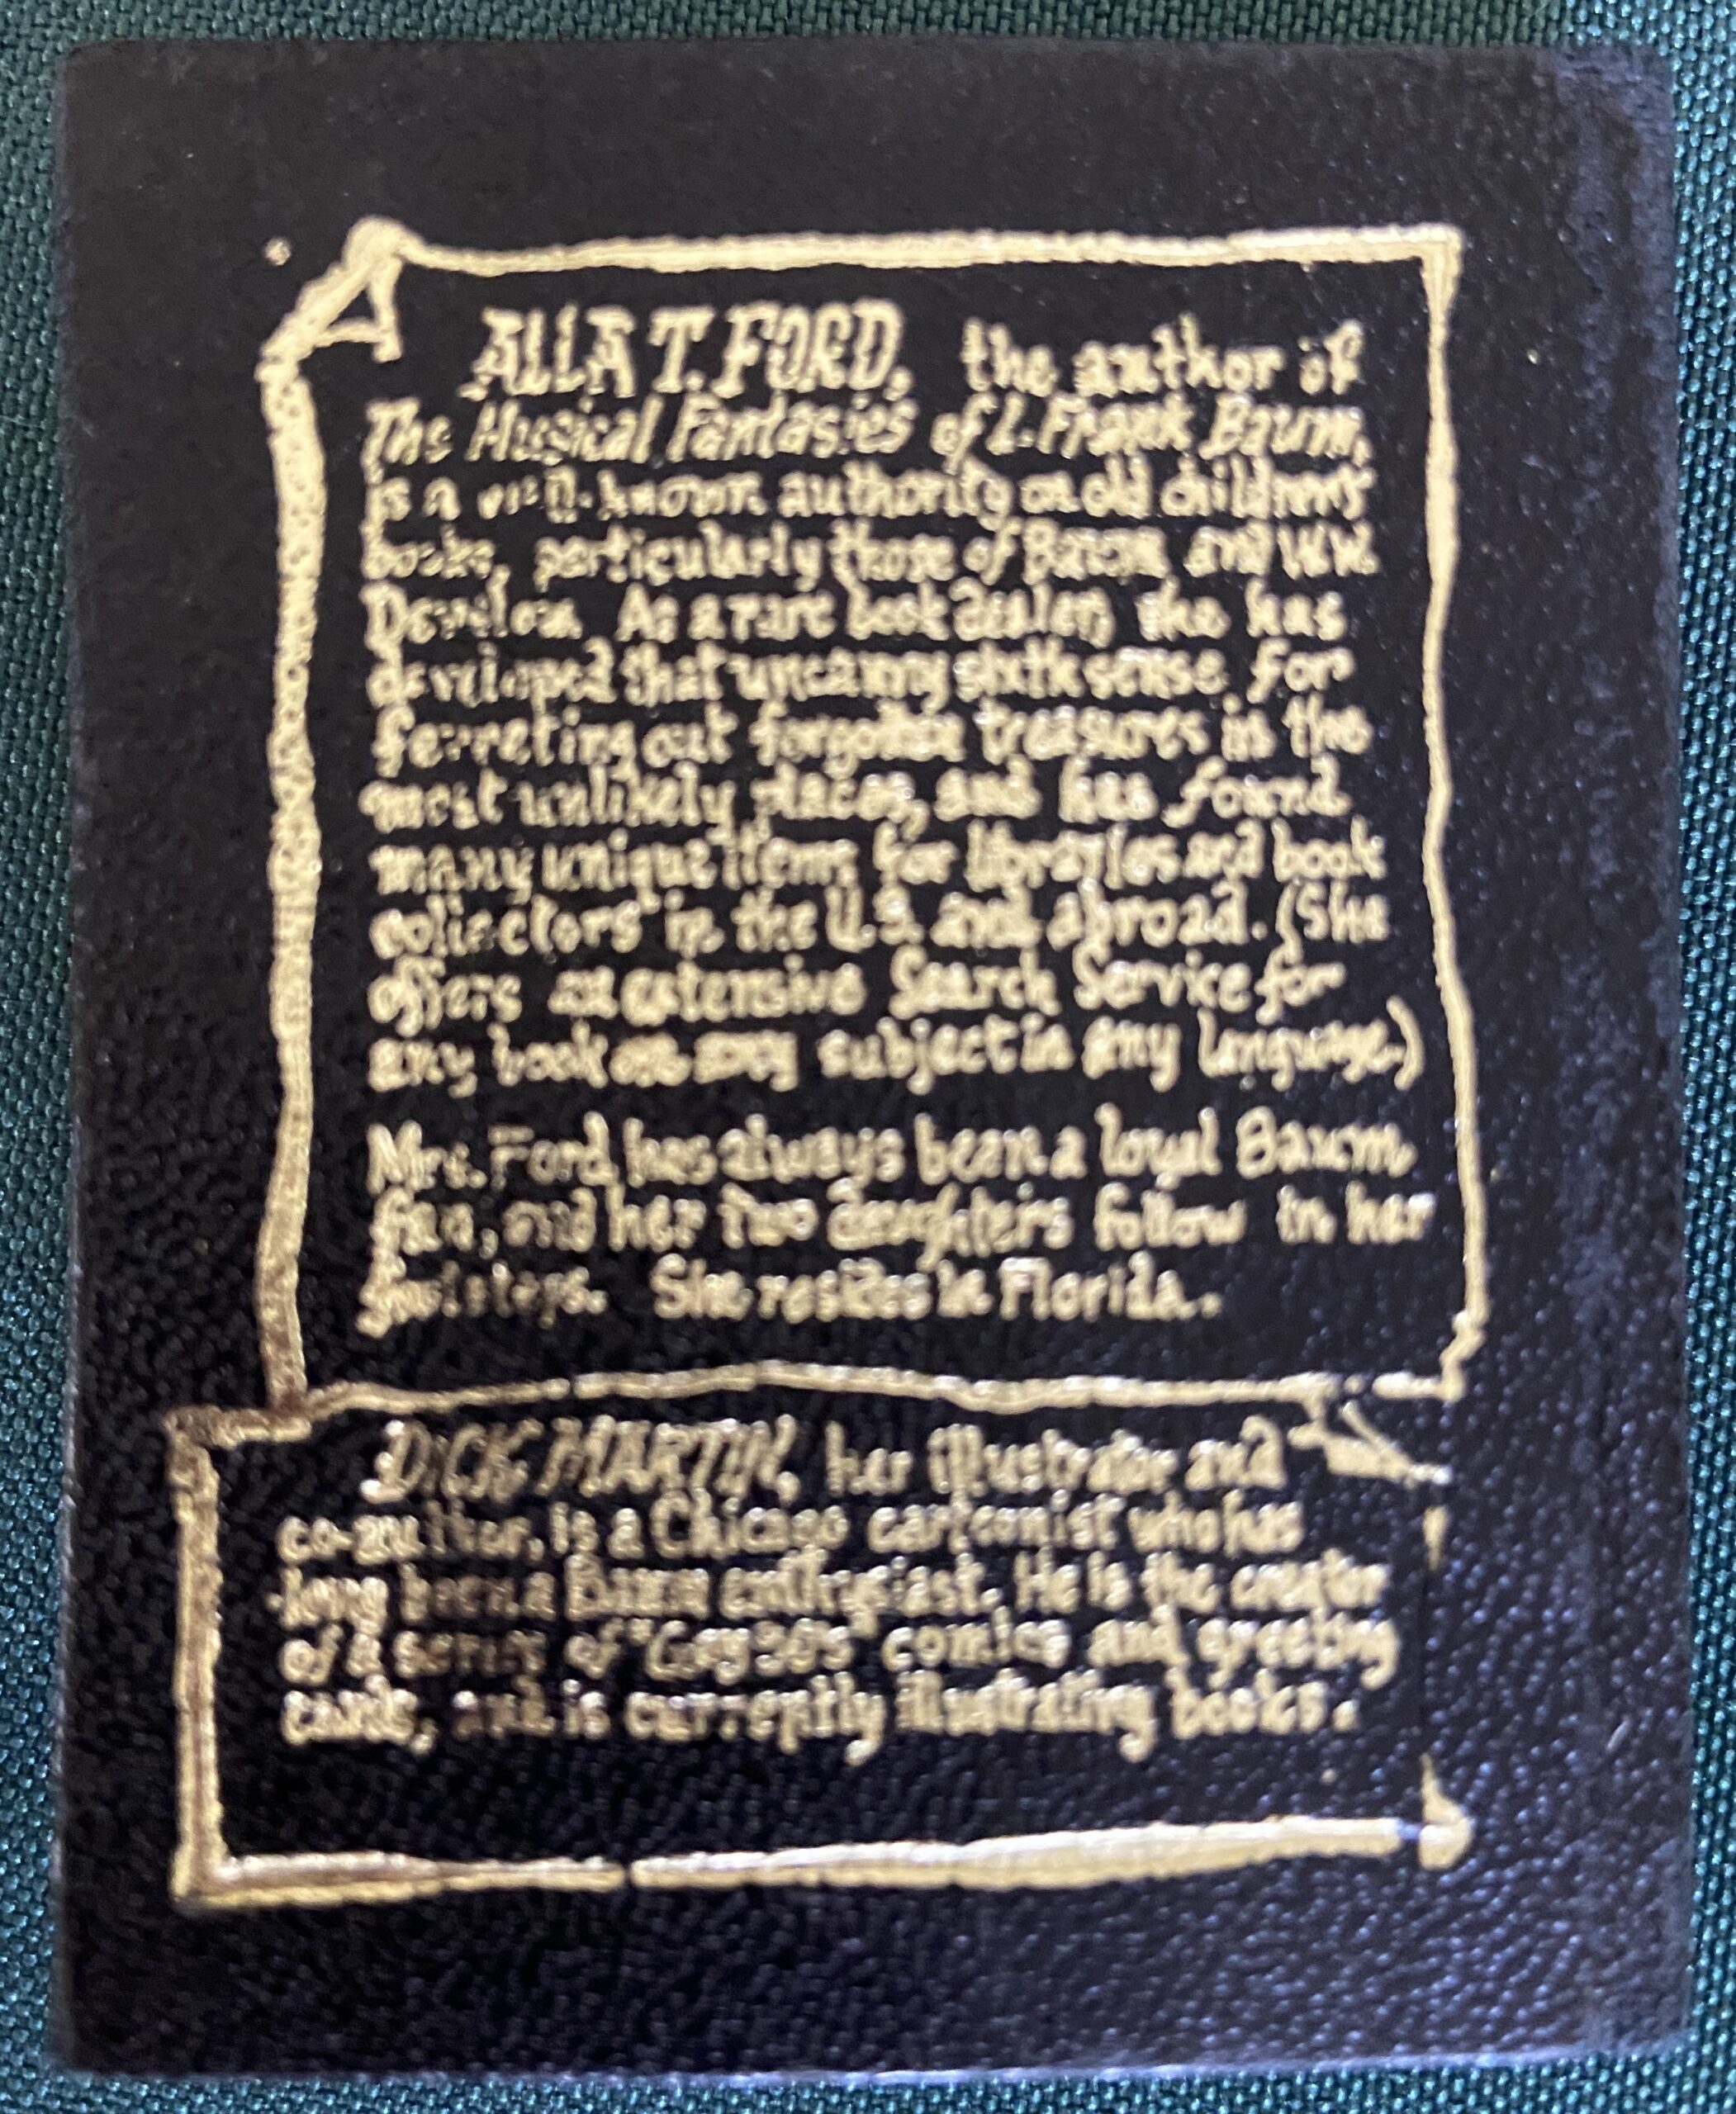 ALLA T. FORD, the author of
The Musical Fantasies of L. Frank Baum,
is a well-known authority on old children's
books, particularly those of Baum and W.W.
Denslow. As a rare book dealer, she has
developed that uncanny sixth sense for
ferreting out forgotten treasures in the
most unlikely places, and has found
many unique items for libraries and book
collectors in the U.S. and abroad. (She
offers an extensive Search Service for
any book on any subject in any language.)
Mrs. Ford has always been a loyal Baum
fan, and her two daughters follow in her
footsteps. She resides in Florida.
DICK MARTIN, her illustrator and
co-author, is a Chicago cartoonist who has
long been a Baum enthusiast. He is the creator
of a series of "Gay 90s" comics and greeting
cards, and is currently illustrating books.